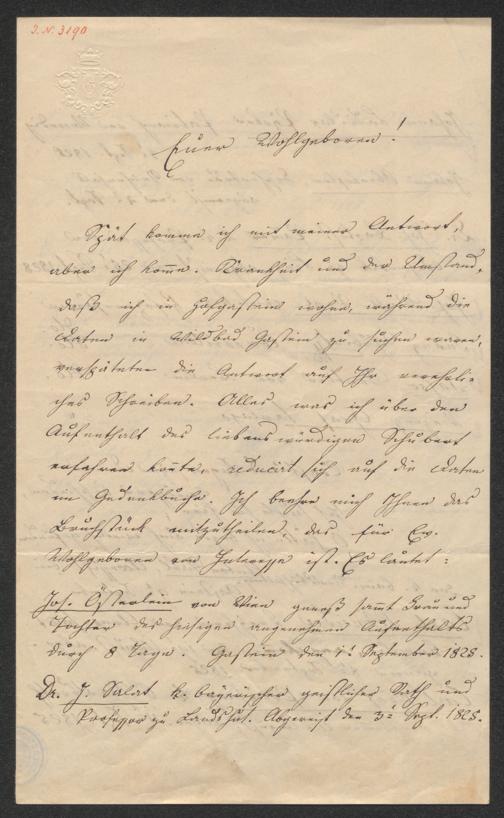 J. N. 3190
Euer Wohlgeboren!
Spät komme ich mit meiner Antwort,
aber ich kome. Krankheit und der Umstand,
daß ich in Hofgastein wohne, während die
Daten in Wildbad Gastein zu suchen waren,
verspäteten die Antwort auf Ihr verehrli=
ches Schreiben. Alles was ich über den
Aufenthalt des liebenswürdigen Schubert
erfahren konte, reducirt sich auf die Daten
im Gedenkbuche. Ich beehre mich Ihnen das
Bruchstück mitzutheilen, das für Ew.
Wohlgeboren von Interesse ist. Es lautet:
Jos. Österlein von Wien genoß samt Frau und
Tochter des hiesigen angenehmen Aufenthalts
durch 8 Tage. Gastein den 1t September 1825.
Dr. J. Salat k. bayerischer geistlicher Rath und
Professor zu Landshut. Abgereist den 3t Sept. 1825.